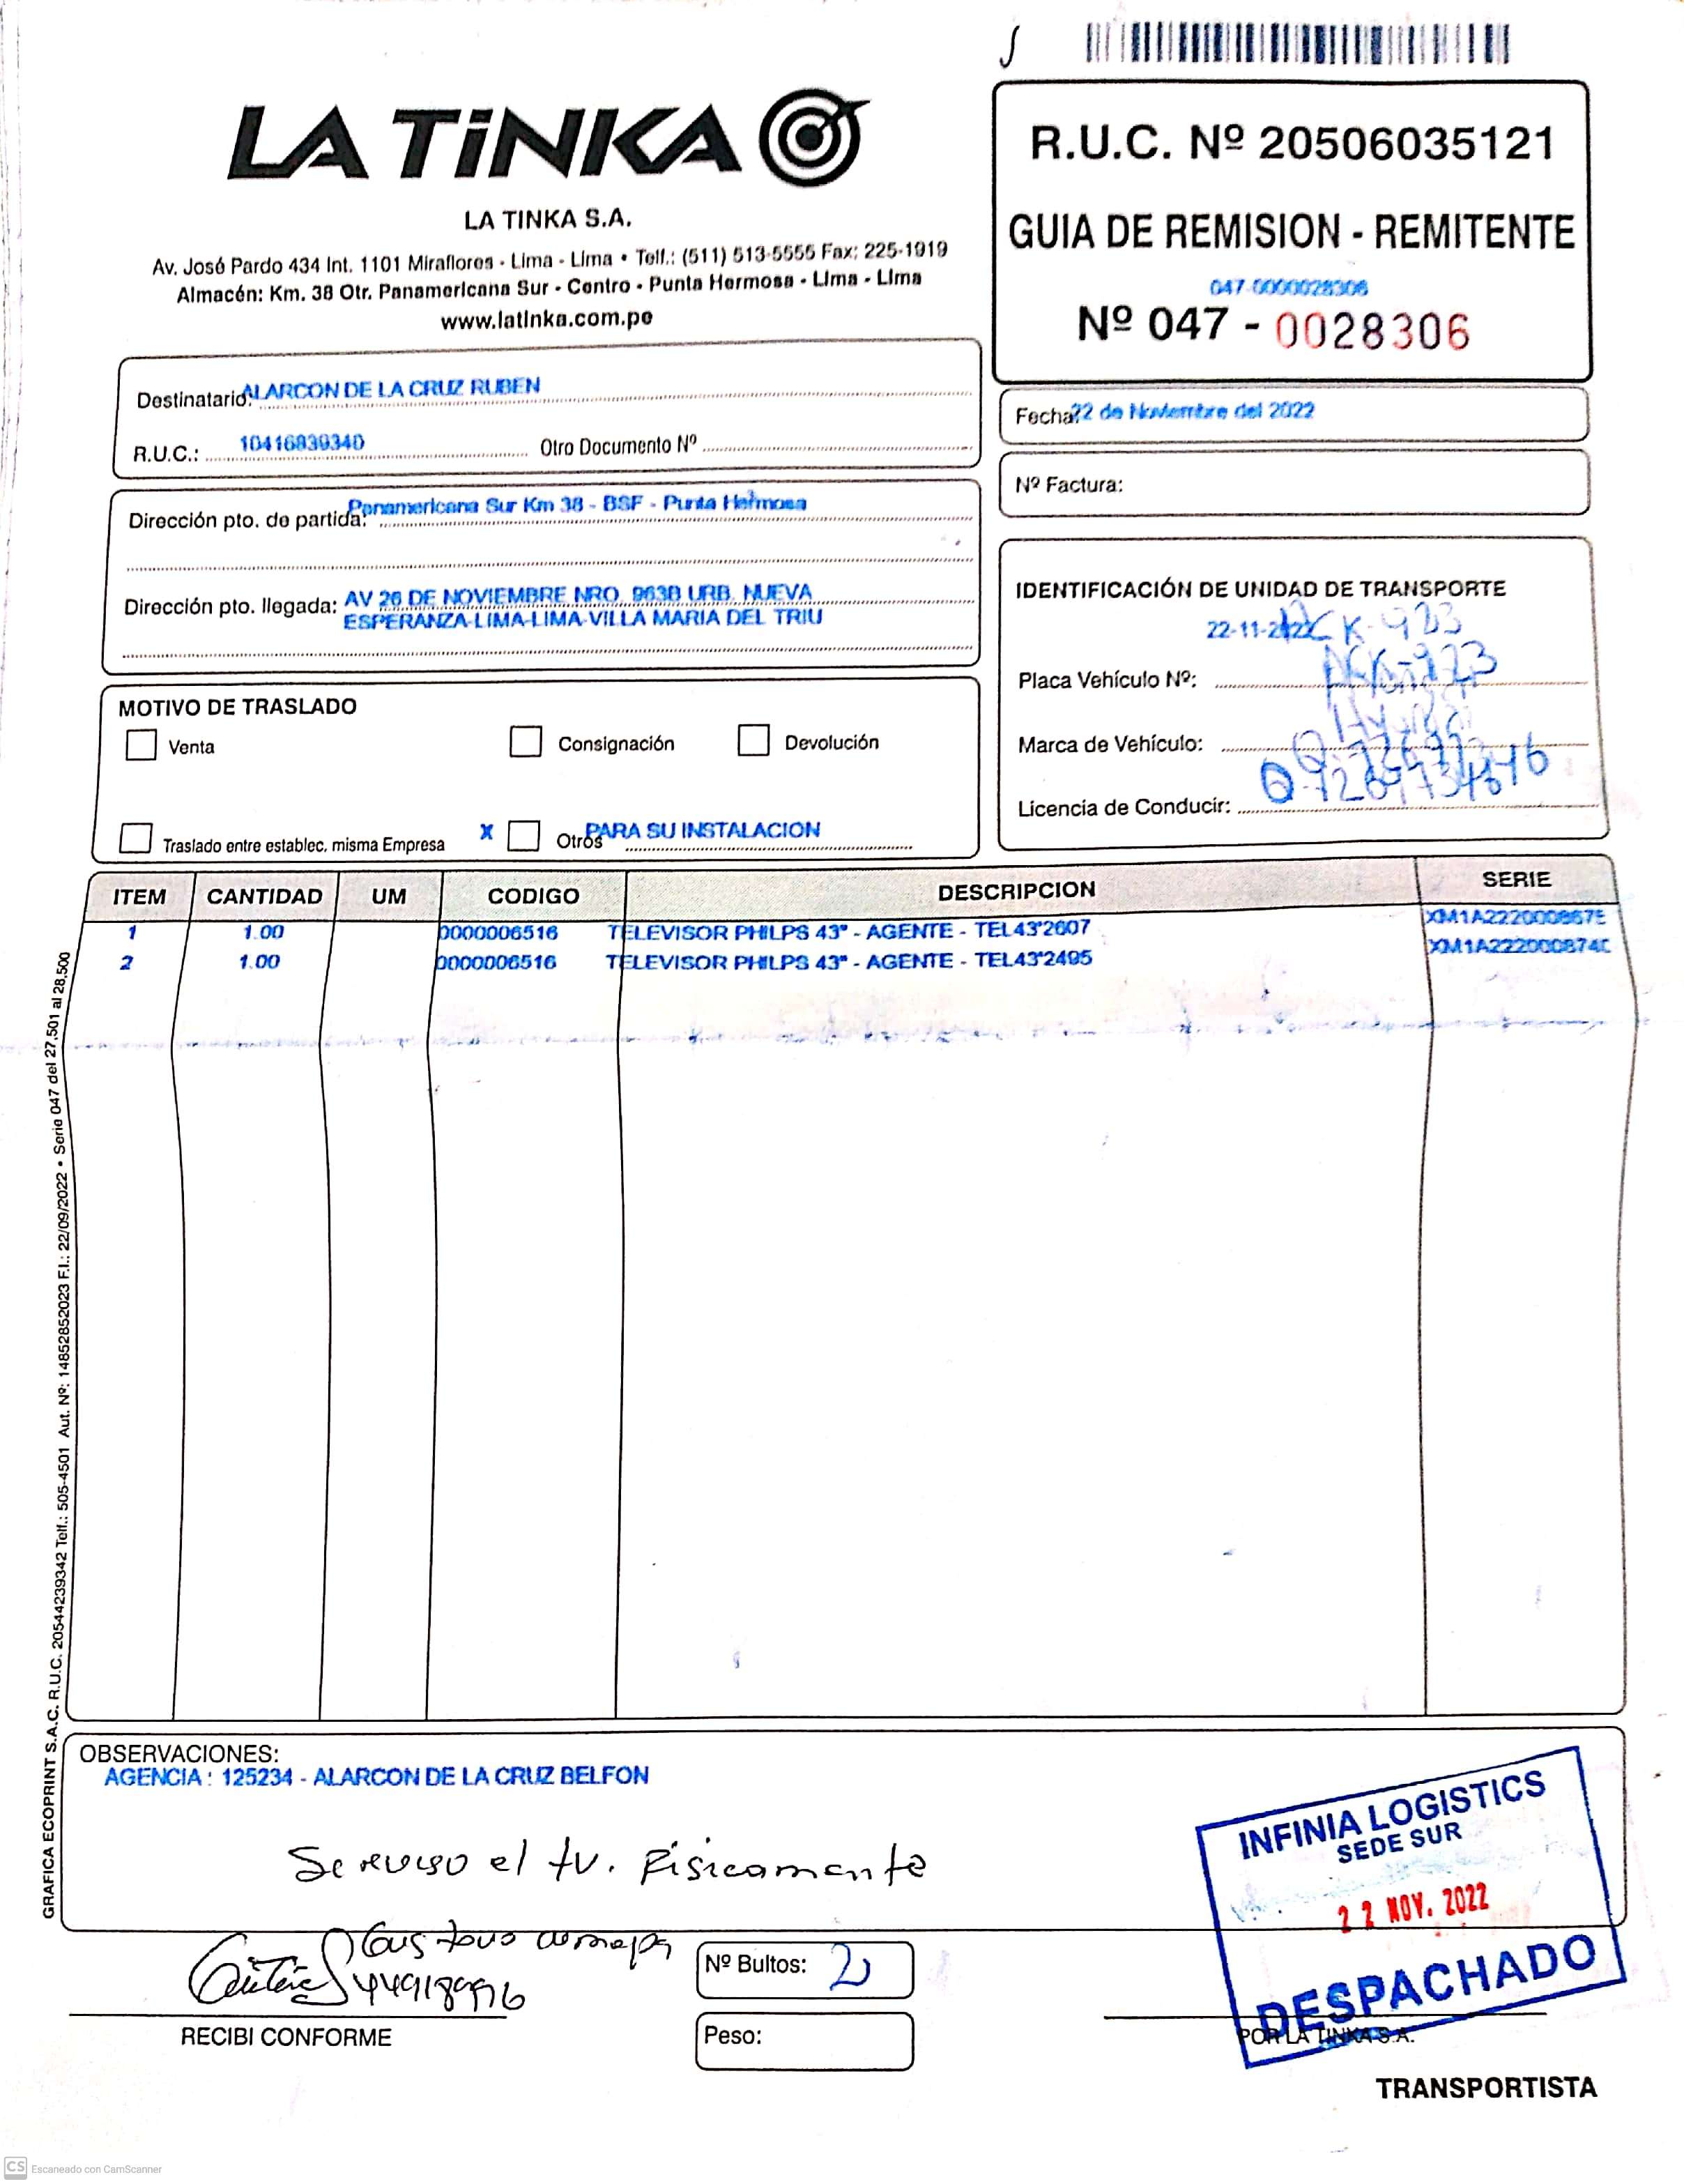 LA TiNKA
LA TINKA S.A.
Av. José Pardo 434 Int. 1101 Miraflores - Lima - Lima • Telf.: (511) 513-5555 Fax: 225-1919
Almacén: Km. 38 Otr. Panamericana Sur - Centro - Punta Hermosa - Lima - Lima
www.latinka.com.pe
R.U.C. Nº 20506035121
GUIA DE REMISION - REMITENTE
047-0000028306
Nº 047 - 0028306
Destinatario: ALARCON DE LA CRUZ RUBEN
R.U.C.: 10416839340 Otro Documento Nº
Fecha: 22 de Noviembre del 2022
Nº Factura:
Dirección pto. de partida: Panamericana Sur Km 38 - BSF - Punta Hermosa
Dirección pto. llegada: AV 26 DE NOVIEMBRE NRO. 963B URB. NUEVA
ESPERANZA-LIMA-LIMA-VILLA MARIA DEL TRIU
IDENTIFICACIÓN DE UNIDAD DE TRANSPORTE
22-11-2022
Placa Vehículo Nº:
Marca de Vehículo:
Licencia de Conducir:
MOTIVO DE TRASLADO
Venta Consignación Devolución
Traslado entre establec. misma Empresa X Otros PARA SU INSTALACION
ITEM CANTIDAD UM CODIGO DESCRIPCION SERIE
1 1.00 0000006516 TELEVISOR PHILPS 43" - AGENTE - TEL43'2607
2 1.00 0000006516 TELEVISOR PHILPS 43" - AGENTE - TEL43'2495
GRAFICA ECOPRINT S.A.C. R.U.C. 20544239342 Telf.: 505-4501 Aut. Nº: 14852852023 F.I.: 22/09/2022 • Serie 047 del 27,501 al 28,500
OBSERVACIONES:
AGENCIA : 125234 - ALARCON DE LA CRUZ BELFON
Se reviso el tv. Fisicamente
INFINIA LOGISTICS
SEDE SUR
22 NOV. 2022
DESPACHADO
Gustavo
44918996
RECIBI CONFORME
Nº Bultos: 2
Peso:
POR LA TINKA S.A.
TRANSPORTISTA
CS Escaneado con CamScanner